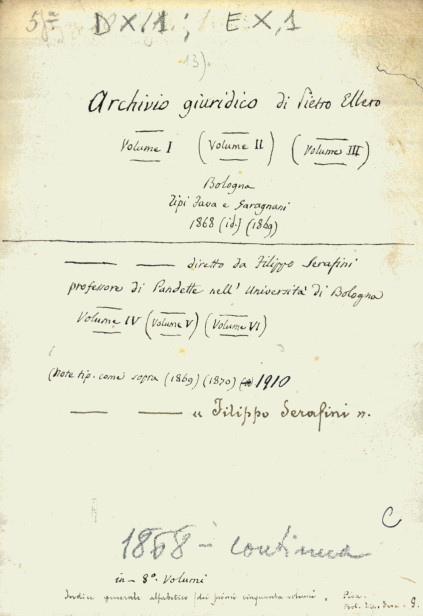 5ª DX,1; EX,1
13).
Archivio giuridico di Pietro Ellero
Volume I (Volume II) (Volume III)
Bologna
Tipi Fava e Garagnani
1868 (id.) (1869)
— — diretto da Filippo Serafini
professore di Pandette nell' Università di Bologna
Volume IV (Volume V) (Volume VI)
(Note tip. come sopra (1869) (1870) 1910
— — "Filippo Serafini".
C
1868 - continua
in-8º. Volumi
Indice generale alfabetico dei primi cinquanta volumi, Pisa.